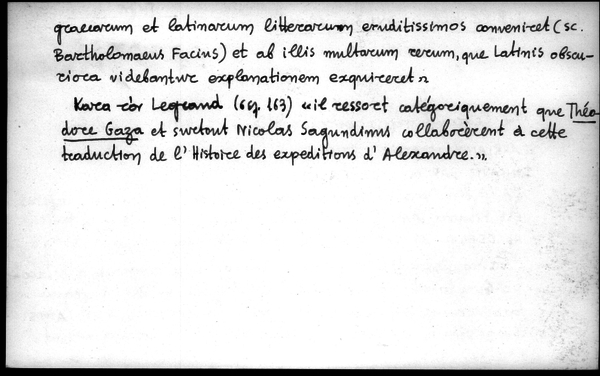 graecarum et latinarum litterarum eruditissimos conveniret (sc.
Bartholomaeus Facius) et ab illis multarum rerum, que Latinis obscu-
riora videbantur explanationem exquireret »
Κατα τὸν Legrand (σελ. 163) « il ressort catégoriquement que Théo-
dore Gaza et surtout Nicolas Sagundinus collaborèrent à cette
traduction de l' Histoire des expeditions d' Alexandre. ».